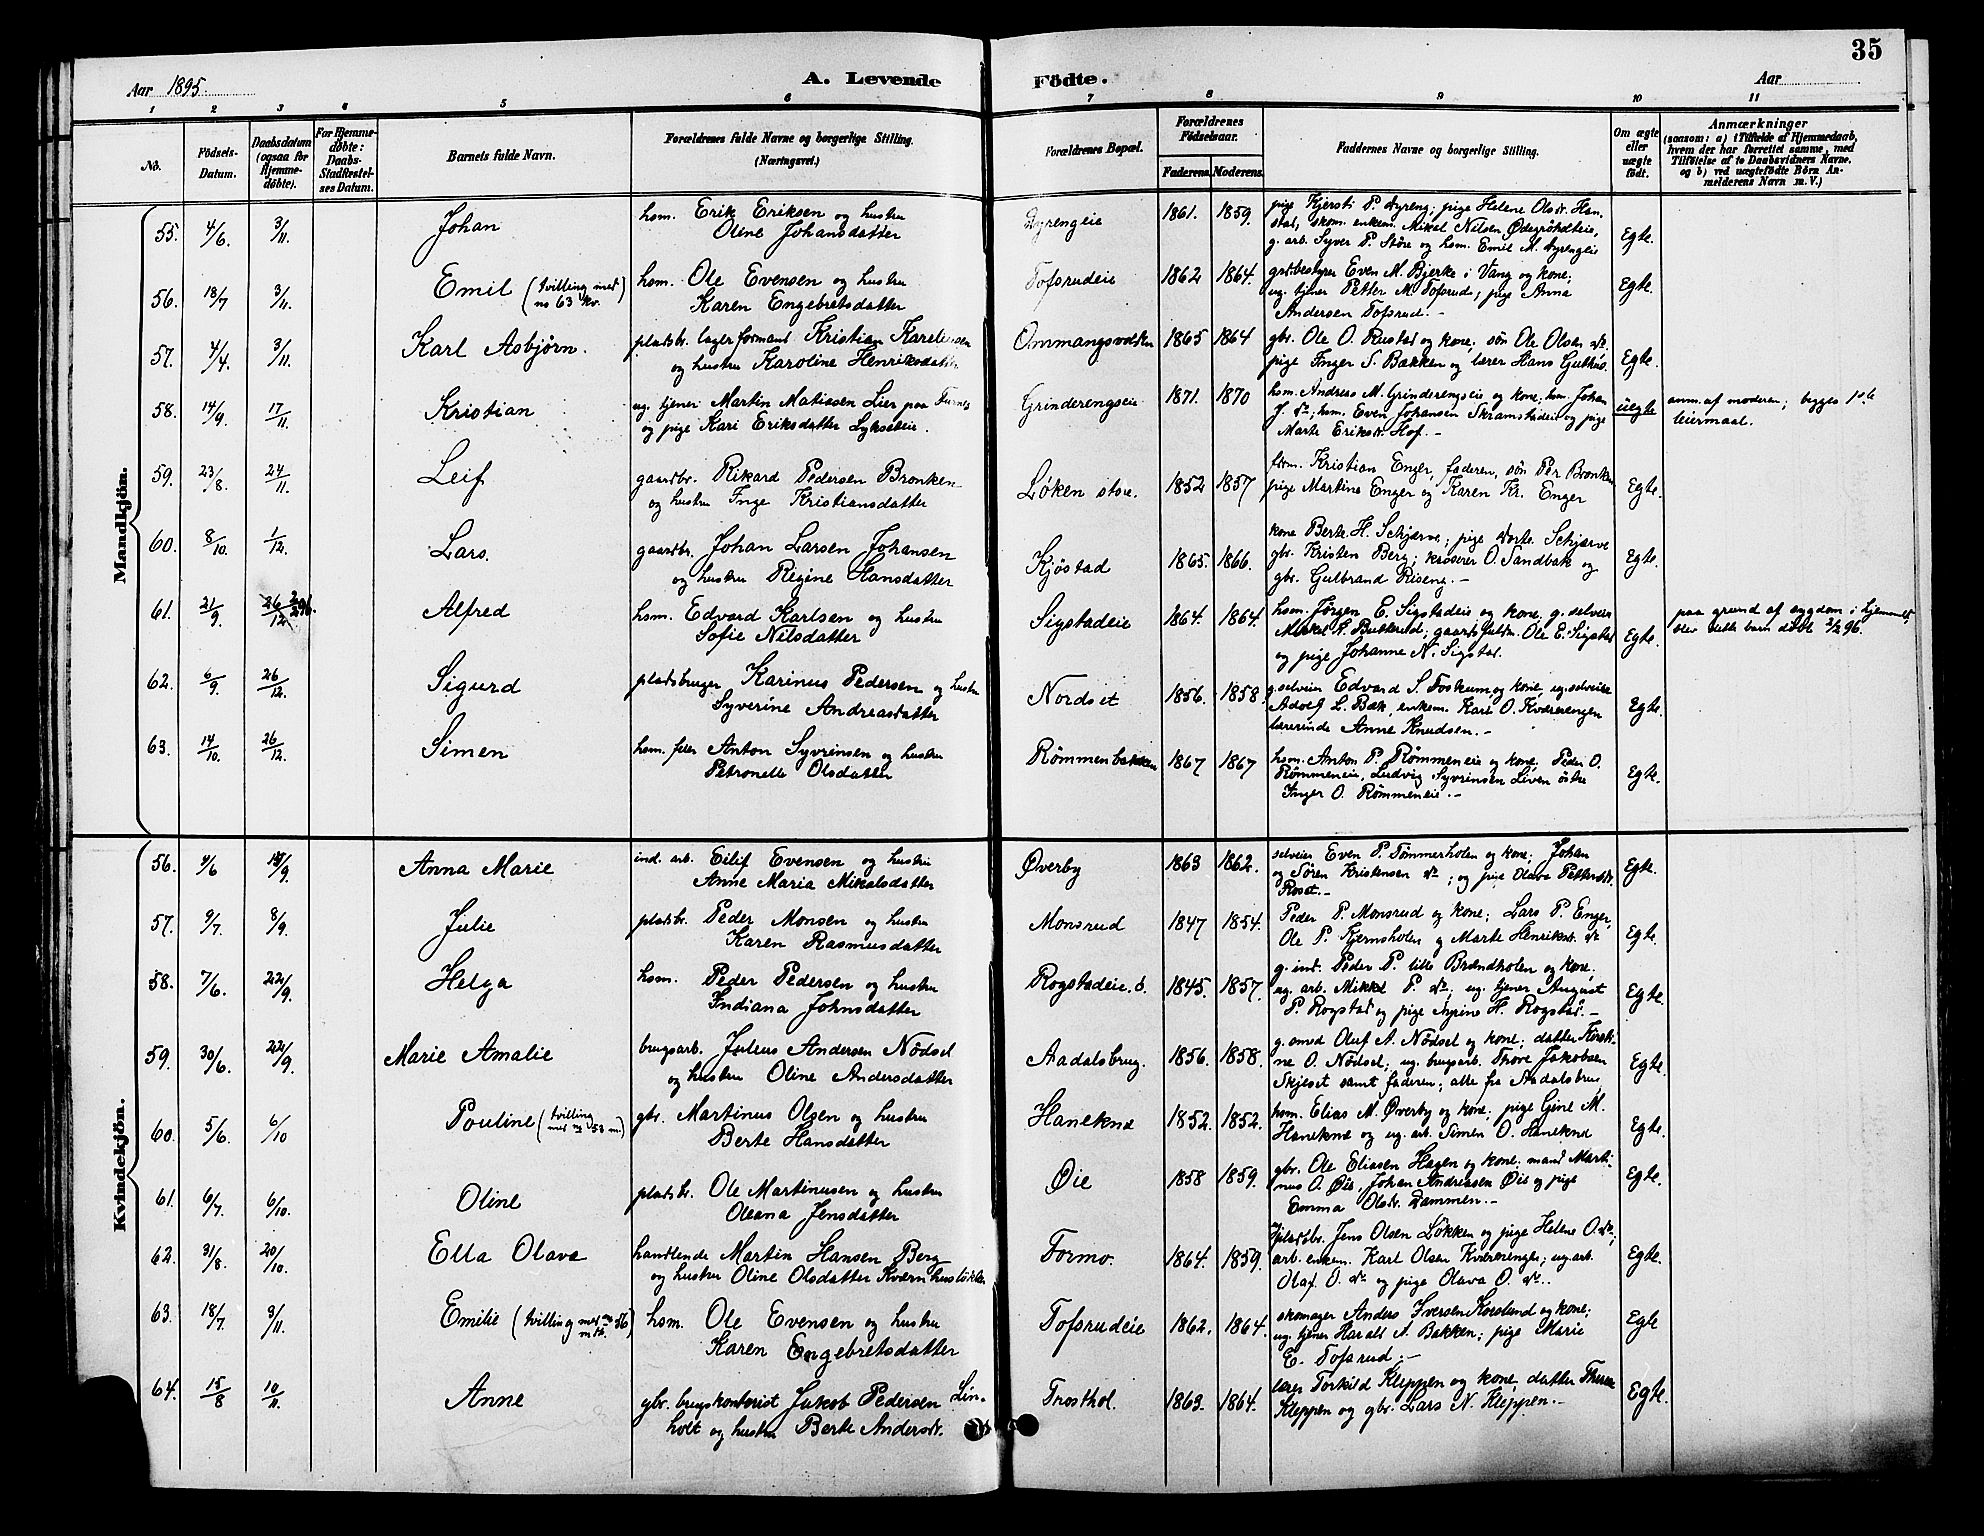 35
Aar 1895.
A. Levende Födte.
Aar
1 2 3 4 5 6 7 8 9 10 11
No.
Födsels-
Datum.
Daabsdatum
(ogsaa for
Hjemme-
döbte).
For Hjemme-
döbte:
Daabs-
Stadfæstel-
ses Datum.
Barnets fulde Navn.
Forældrenes fulde Navne og borgerlige Stilling.
(Næringsvei.)
Forældrenes Bopæl.
Forældrenes
Födselsaar.
Faderens. Moderens.
Faddernes Navne og borgerlige Stilling.
Om ægte
eller
uægte
födt.
Anmærkninger
(saasom: a) i Tilfælde af Hjemmedaab,
hvem der har forrettet samme, med
Tilföielse af to Daabsvidners Navne,
og b) ved uægtefödte Börn An-
melderens Navn m. V.)
Mandkjön.
55. 4/6. 3/11. Johan
hsm. Erik Eriksen og hustru
Oline Johansdatter
Dyrengeie 1861. 1859.
pige Kjersti P. Dyreng; pige Helene Olsdr. Han-
stad, skom. enkem. Mikal Nilsen Ødegrdhdteie,
g. arb. Syver P. Støre og hsm. Emil M. Dyrengeie
Egte.
56. 18/7 3/11. Emil (tvilling med
no 63 kv.
hsm. Ole Evensen og hustru
Karen Engebretsdatter
Tofsrudeie 1862 1864.
grdbestyrer Even M. Bjerke i Vang og kone;
ug. tjener Petter M. Tofsrud; pige Anna
Andersen Tofsrud. -
Egte.
57. 4/4. 3/11. Karl Asbjörn.
pladsbr. lagerformand Kristian Karelinsen
og hustru Karoline Henriksdatter
Ommangsvolden 1865 1864
gbr. Ole O. Rustad og kone; sön Ole Olsen do.
pige Inger S. Bakken og lærer Hans Guthus.
Egte.
58. 14/9. 17/11. Kristian
ug. tjener Martin Matissen Lier paa Furnes
og pige Kari Eriksdatter Lykseteie.
Grinderengseie 1871. 1870
hsm. Andreas M. Grinderengseie og kone; hsm. Johan
J. do; hsm. Even Johansen Skramstadeie og pige
Marte Eriksdr. Hof. -
uegte
anm. af moderen; begges 1ste
leiermaal.
59. 23/8. 24/11. Leif
gaardbr. Rikard Pedersen Bronken
og hustru Inge Kristiansdatter
Løken store. 1852 1857
fhv. Kristian Enger, faderen, sön Per Bronken
pige Martine Enger og Karen Kr. Enger
Egte.
60. 8/10. 1/12. Lars.
gaardbr. Johan Larsen Johansen
og hustru Regine Hansdatter
Kjøstad 1865. 1866.
kone Berte H. Schjærve; pige Dorte Schjærve
gbr. Kristen Berg; kröserer O. Sandbak og
gbr. Gulbrand Riseng. -
Egte.
61. 21/9. 26/12 2/2 96. Alfred
hsm. Edvard Karlsen og hustru
Sofie Nilsdatter
Sigstadeie 1864. 1864.
hsm. Jörgen E. Sigstadeie og kone, g. selveier
Mikkel K. Butterud; gaardsfuldm. Ole E. Sigstad
og pige Johanne N. Sigstad.
Egte.
paa grund af sygdom i hjemmet,
blev dette barn döbt 2/2 96.
62. 6/9. 26/12. Sigurd
pladsbruger Karinus Pedersen og hustru
Syverine Andreasdatter
Nordset 1856. 1858.
g. selveier Edvard S. Foskum og kone, ug. selveier
Adolf L. Bæk, enkem. Karl O. Kværnengen
lærerinde Anne Knudsen. -
Egte.
63. 14/10. 26/12. Simen
hsm. feier Anton Syvrinsen og hustru
Petronelle Olsdatter
Rømmenbakken 1867 1867
hsm. Anton P. Rømmeneie og kone, Peder O.
Rømmeneie, Ludvig Syvrinsen Liven östre
Inger O. Rømmeneie. -
Egte.
Kvindekjön.
56. 4/6 15/9. Anna Marie
ind. arb. Eilif Evensen og hustru
Anne Maria Mikalsdatter
Øverby 1863 1862.
selveier Even P. Tømmerholen og kone; Johan
og Søren Kristensen do; og pige Olava Pettersdr.
Roset. -
Egte.
57. 9/7. 8/9. Julie
pladsbr. Peder Monsen og hustru
Karen Rasmusdatter
Monsrud 1847 1854.
Peder P. Monsrud og kone; Lars P. Enger,
Ole P. Kjernsholen og Marte Henriksdr. do
Egte.
58. 7/6. 22/9. Helga
hsm. Peder Pedersen og hustru
Indiana Johnsdatter
Rogstadeie. ö. 1845. 1857.
g. ind. Peder P. lille Brændholen og kone,
ug. arb. Mikkel P. do; ug. tjener August
P. Rogstad og pige Syrine H. Rogstad. -
Egte.
59. 30/6. 22/9. Marie Amalie
brugsarb. Julius Andersen Nödsel
og hustru Oline Andersdatter
Aadalsbrug. 1856. 1858.
g. smed Oluf A. Nödsel og kone; datter Torsti-
ne O. Nödsel; ug. brugsarb. Thore Jakobsen
Skjeset samt faderen; alle fra Aadalsbrug
Egte.
60. 5/6. 6/10 Pouline (tvilling
med no 53 m.)
gbr. Martinus Olsen og hustru
Berte Hansdatter
Haneknæ 1852. 1852.
hsm. Elias M. Øverby og kone; pige Gine M.
Haneknæ og ug. arb. Simen O. Haneknæ
Egte.
61. 6/7. 6/10. Oline
pladsbr. Ole Martinusen og hustru
Oleana Jensdatter
Øie 1858 1859.
gbr. Ole Eliasen Hagen og kone; mand Marti-
nus O. Øie, Johan Andreasen Øie og pige
Emma Olsdr. Dammen. -
Egte.
62. 31/8. 20/10. Ella Olava
handlende Martin Hansen Berg
og hustru Oline Olsdatter Kværnhusløkken
Formo. 1864. 1859.
pladsbr. Jens Olsen Løkken og pige Helene O. do;
arb. enkem. Karl Olsen Kværnengen; ug. arb.
Olaf O. do og pige Olava O. do..
Egte.
63. 18/7. 3/11. Emilie (tvilling med no 56
mdk.)
hsm. Ole Evensen og hustru
Karen Engebretsdatter
Tofsrudeie 1862. 1864.
skomager Anders Iversen Korslund og kone;
ug. tjener Harald A. Bakken; pige Marie
E. Tofsrud; -
Egte
64. 15/8 10/11. Anne
gbr. brugskontorist Jakob Pedersen Lin-
holt og hustru Berte Andersdr.
Trosthol. 1863. 1864.
lærer Torkild Kleppen og kone, datter Thora
Kleppen og gbr. Lars N. Kleppen. -
Egte.